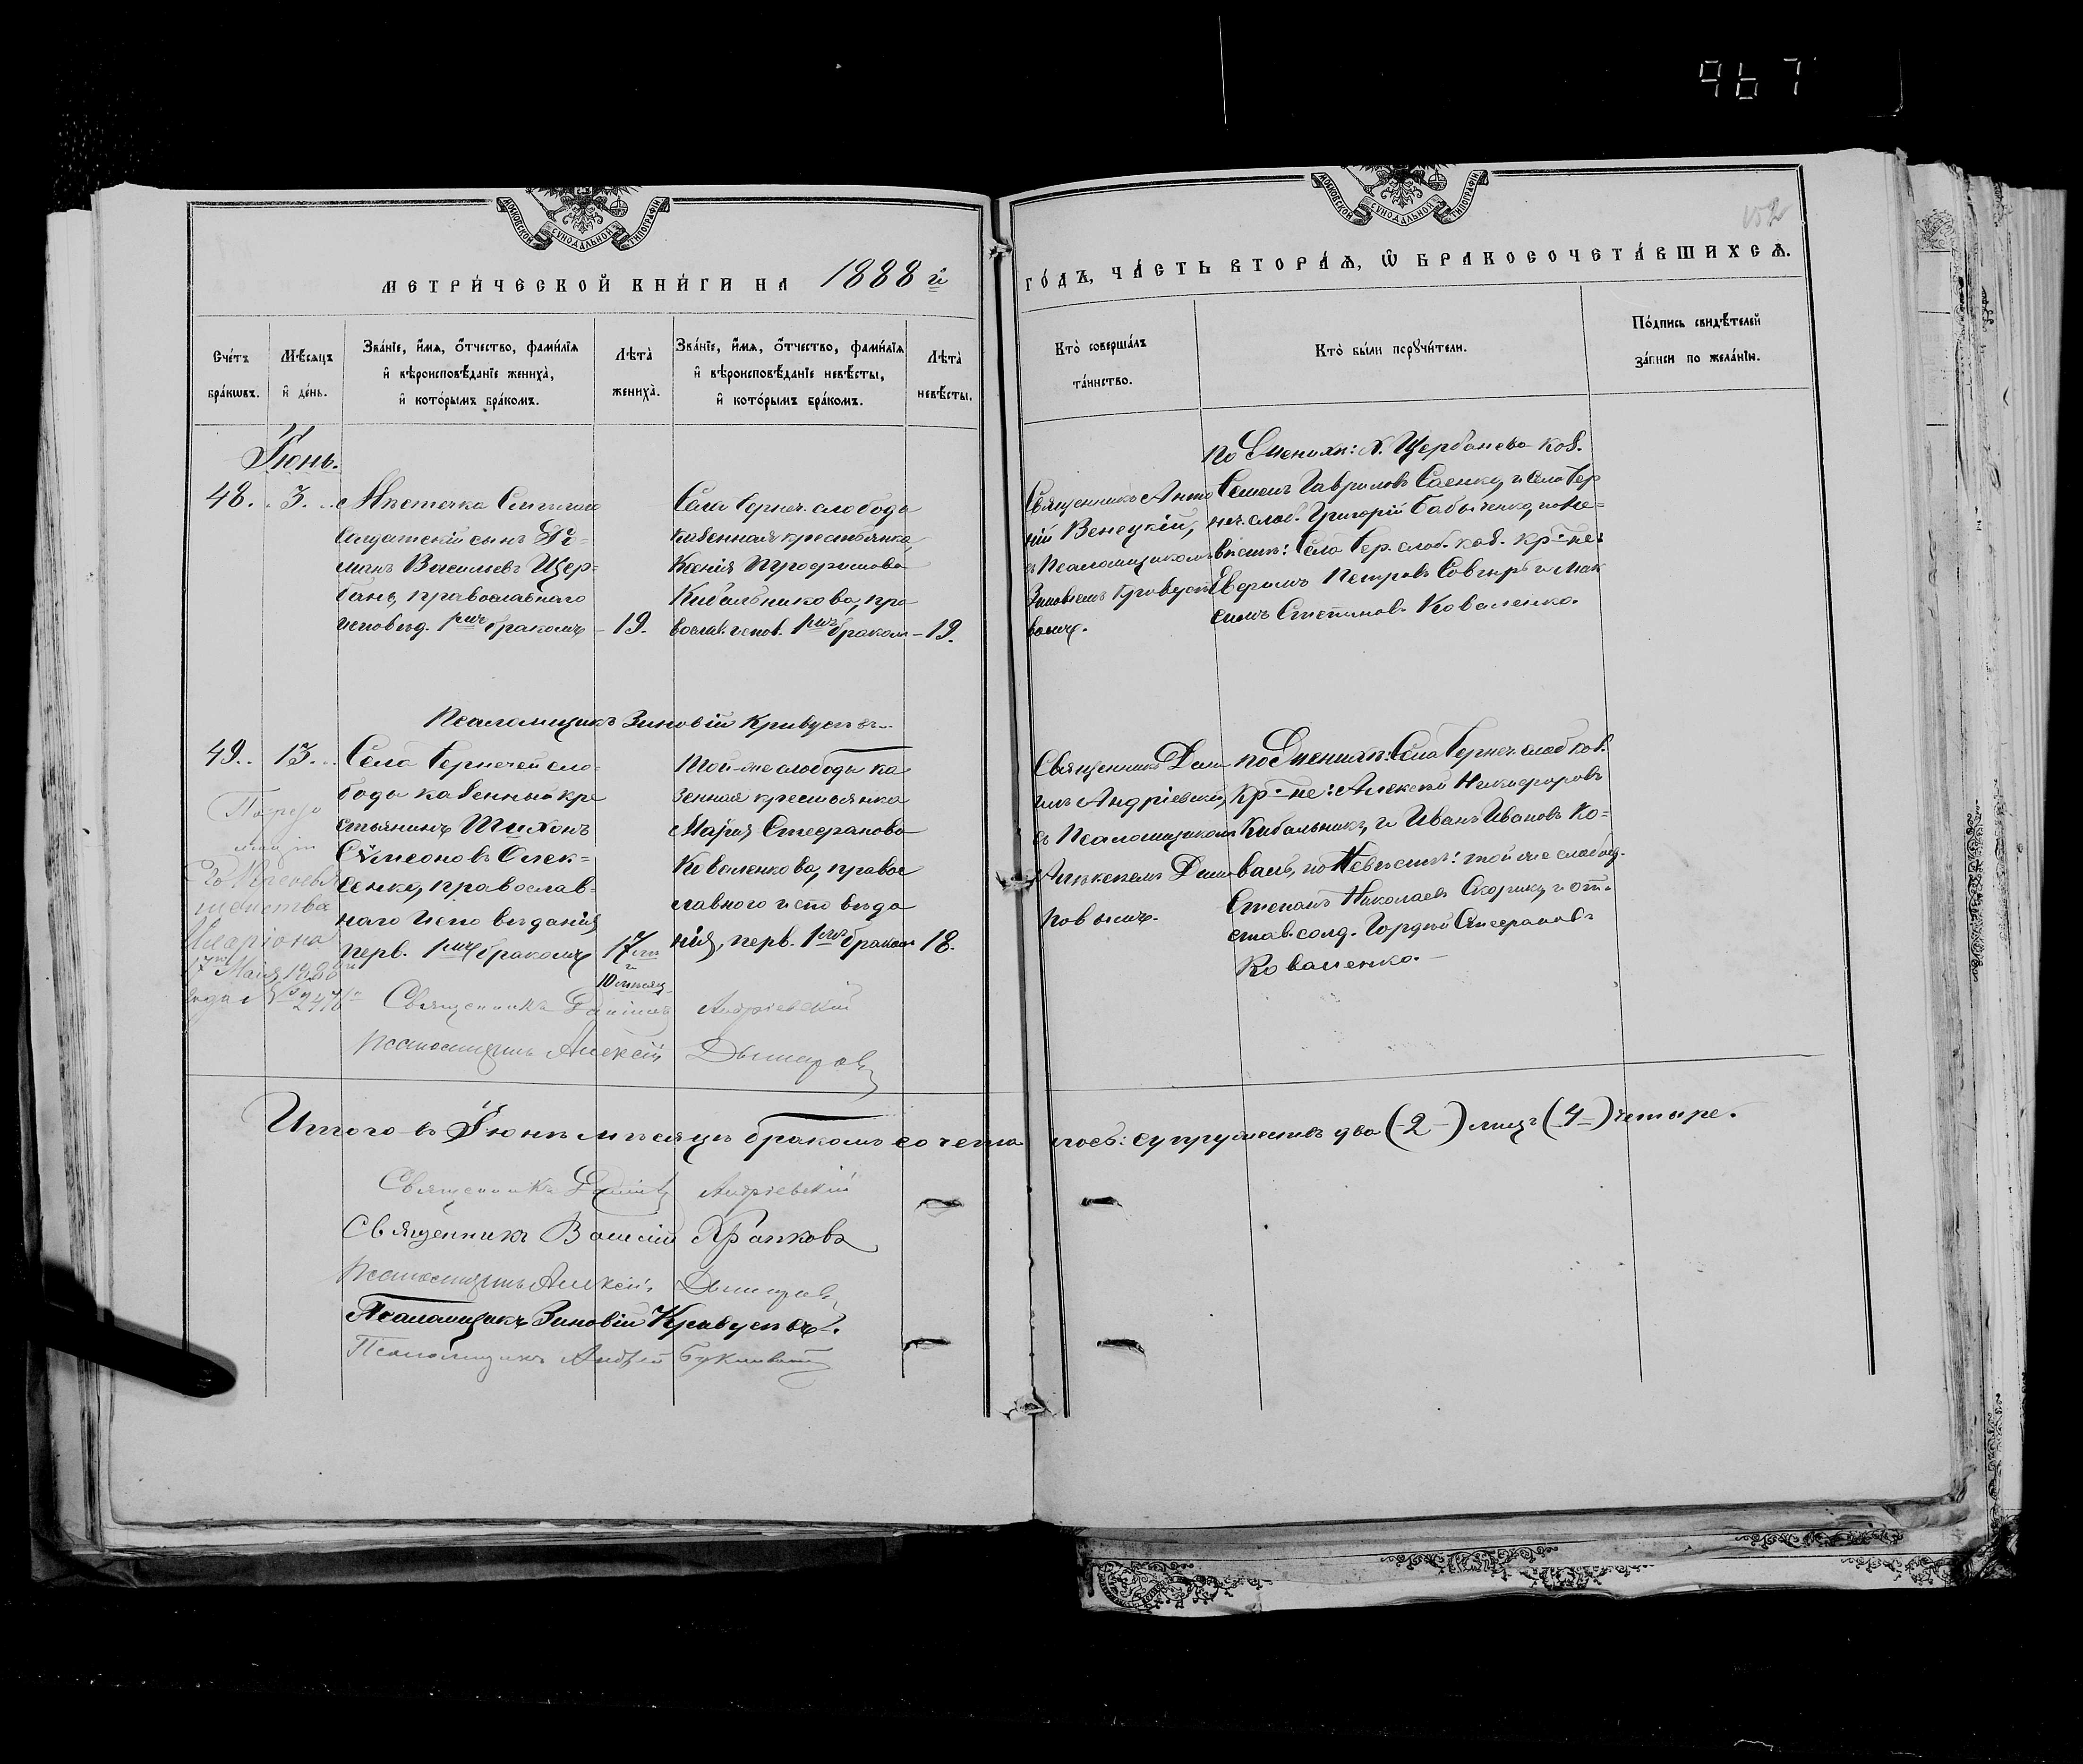 967
152
МОСКОВСКОЙ СѴНОДАЛЬНОЙ ТИПОГРАФІИ
МОСКОВСКОЙ СѴНОДАЛЬНОЙ ТИПОГРАФІИ
МЕТРИ́ЧЕСКОЙ КНИ́ГИ НА 1888 й
ГО́ДЪ, ЧА́СТЬ ВТОРА́Ѧ, Ѿ БРАКОСОЧЕТА́ВШИХСѦ.
Сче́тъ бра́кѡвъ.
Мѣ́сѧцъ и҆ де́нь.
Зва́нїе, и҆́мѧ, ѻ҆́тчество, фами́лїѧ и҆ вѣроисповѣ́данїе жениха̀, и҆ кото́рымъ бра́комъ.
Лѣта̀ жениха̀.
Зва́нїе, и҆́мѧ, ѻ҆́тчество, фами́лїѧ и҆ вѣроисповѣ́данїе невѣ́сты, и҆ кото́рымъ бра́комъ.
Лѣта̀ невѣ́сты.
Кто̀ соверша́лъ та́инство.
Кто̀ бы́ли порꙋчи́тели.
По́дпись свидѣ́телей за́писи по жела́нїю.
Іюнь.
48. 3.
Мѣстечка
сынъ Ро-
манъ Васильевъ Щер-
бань, православнаго
исповѣд. 1мъ бракомъ
19.
Села Чернеч. слободы
казенная крестьянка
Ксенія
Кибальникова, пра
вослав. испов. 1мъ браком
19.
Священникъ Анто
ній Венецкій,
съ Псаломщикомъ
Зиновіемъ Кривусе
вымъ.
по Женихѣ: Х. Щербанева каз.
Семенъ Гавриловъ Саенко, и села Чер
неч. слоб. Григорій Бабыченко, по Не-
вѣстѣ: Села Чер. слоб. каз. кр-не:
Ефимъ Петровъ Совгирь и Мак
симъ Степанов. Коваленко.
Псаломщикъ Зиновій Кривусевъ
49. 13.
Села Чернечей сло-
боды казенный кре
стьянинъ Тихонъ
Сѵмеоновъ Олек-
сенко, православ-
наго исповѣданія
перв. 1мъ бракомъ
17 лѣтъ
и
10 мѣсяц.
Той-же слободы ка
зенная крестьянка
Марія Стефанова
Коваленкова, правос
лавного исповѣда
нія, перв. 1мъ браком
18.
Священникъ Дани
илъ Андріевскій,
съ Псаломщикомъ
Алексѣемъ
повымъ.
по Женихѣ: Села Чернеч. слоб. каз.
кр-не: Алексѣй Никифоровъ
Кибальникъ, и Иванъ Ивановъ Ко-
валь, по Невѣстѣ: той же слобод.
Степанъ Николаевъ Скорикъ, и от-
став. солд. Гордѣй Стефановъ
Коваленко.
Его Преосвя
щенства
Иларіона
17го Мая 1888
года № 2476
Священникъ Даніилъ Андріевскій
Псаломщикъ Алексій
Итого въ Іюнѣ мѣсяцѣ бракомъ сочеталось: супружествъ два (2) лицъ (4) четыре.
Священникъ Даніилъ Андріевскій
Священникъ Василій Храпковъ
Псаломщикъ Алексій
Псаломщикъ Зиновій Кривусевъ.
Псаломщикъ Андрей